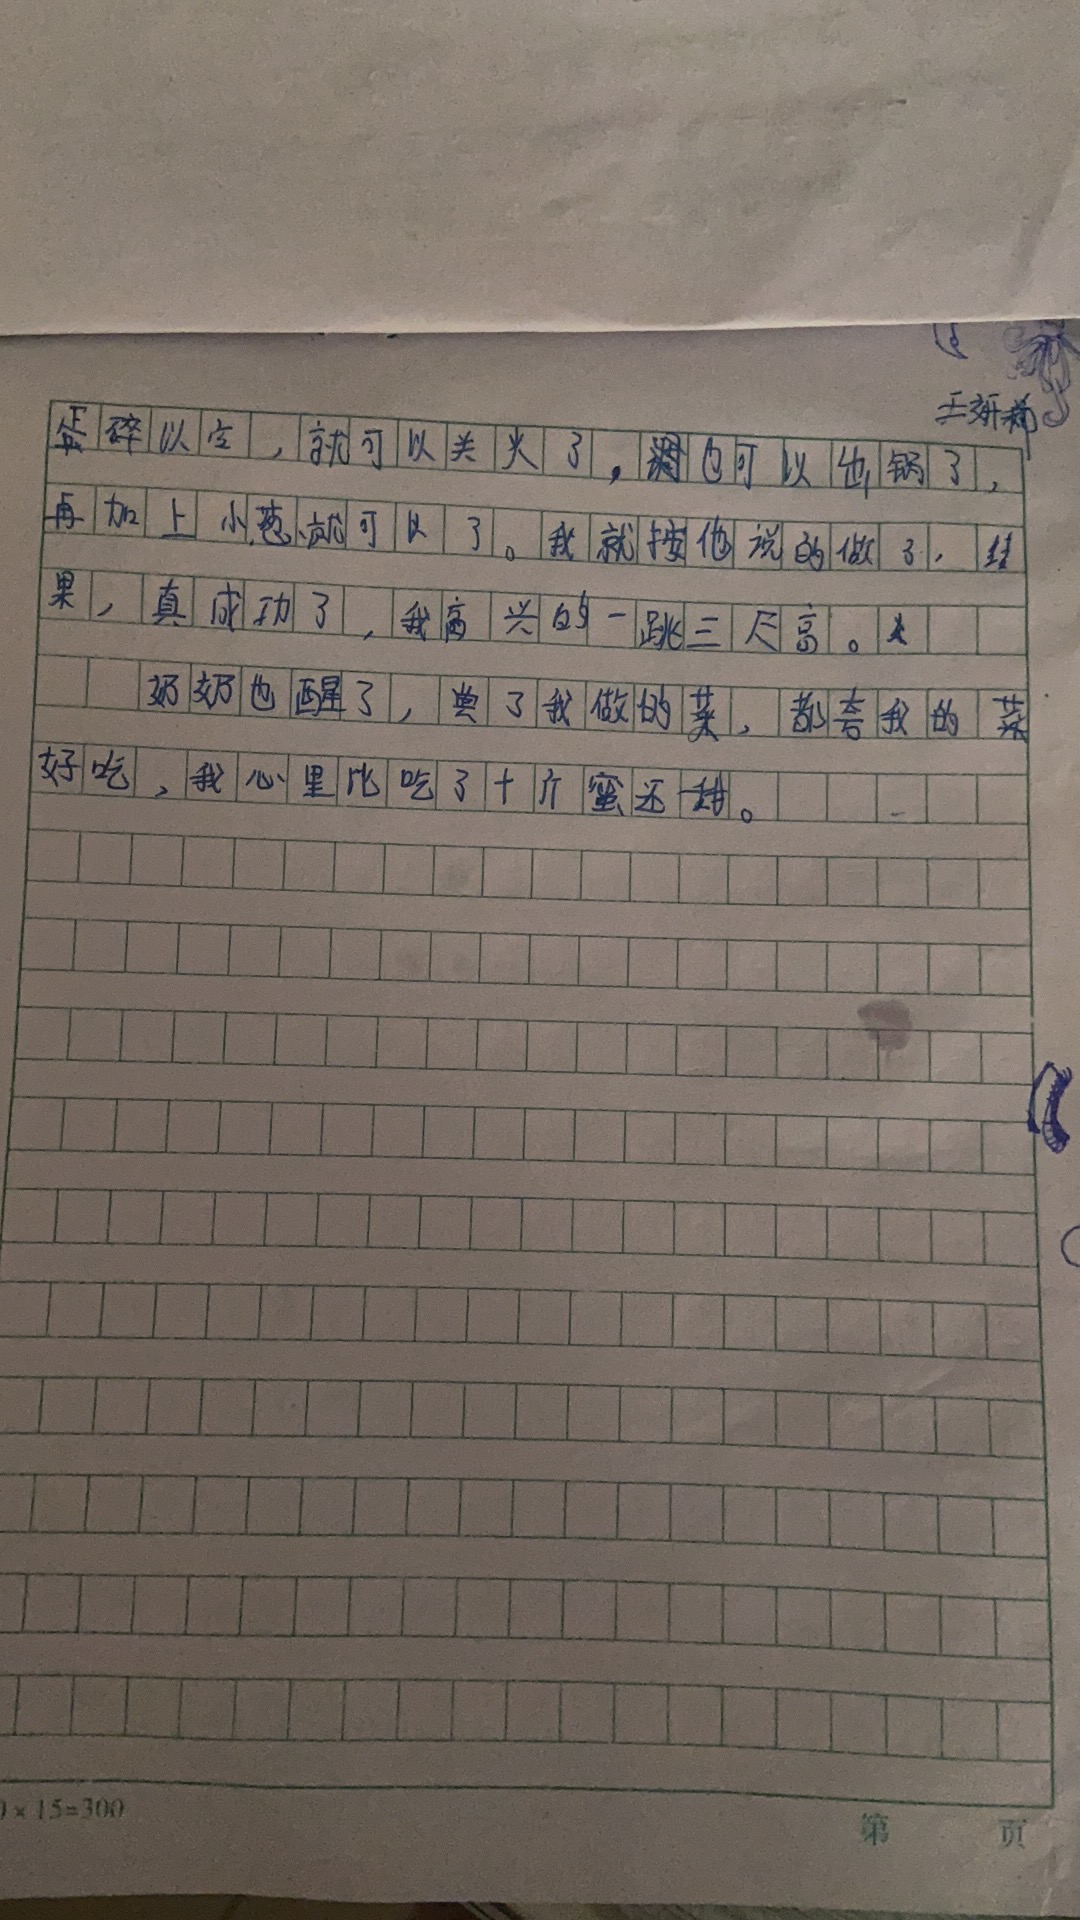 王妍
蛋碎以空，就可以关火了，也可以出锅了，
再加上小葱就可以了。我就按他说的做了，结
果，真成功了，我高兴的一跳三尺高。
奶奶也醒了，尝了我做的菜，都夸我的菜
好吃，我心里比吃了十斤蜜还甜。
×15=300
第 页